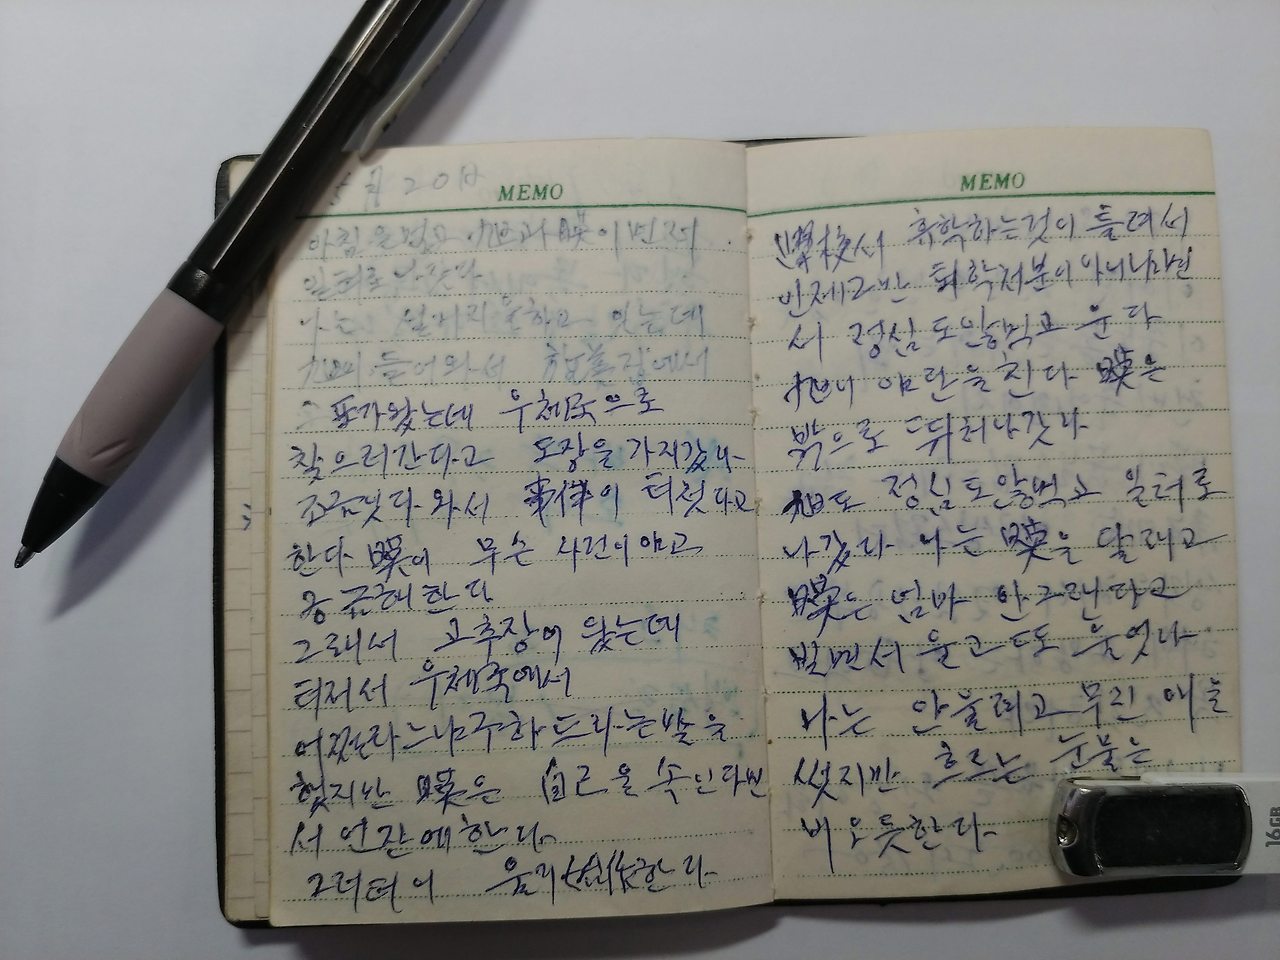 5月 20日
MEMO
아침을먹고 旭과 暎이 먼저
일터로 나갔다
나는 설거지를하고 있는데
旭이 들어와서 집에서
소포가왔는데 우체국으로
찾으러간다고 도장을 가지갔다
조금있다 와서 事件이 터젓다고
한다 暎이 무슨 사건이냐고
궁금해한다
그래서 고추장이 왔는데
터저서 우체국에서
어쩐라느냐구하드라는말을
했지만 暎은 自己을 속인다면
서 언잔에한다
그러더니 울기 한다
MEMO
學校서 휴학하는것이 틀려서
인제그만 퇴학처분이아니냐하면
서 정심도않먹고 운다
旭이 야단을친다 暎은
밖으로 뛰처나갓다
旭도 정심도않먹고 일터로
나갔다 나는 暎을 달래고
暎은 엄마 안그런다고
빌면서 울고 또 울엇다
나는 안울려고 무진 애를
썻지만 흐르는 눈물은
비오듯한다
16GB